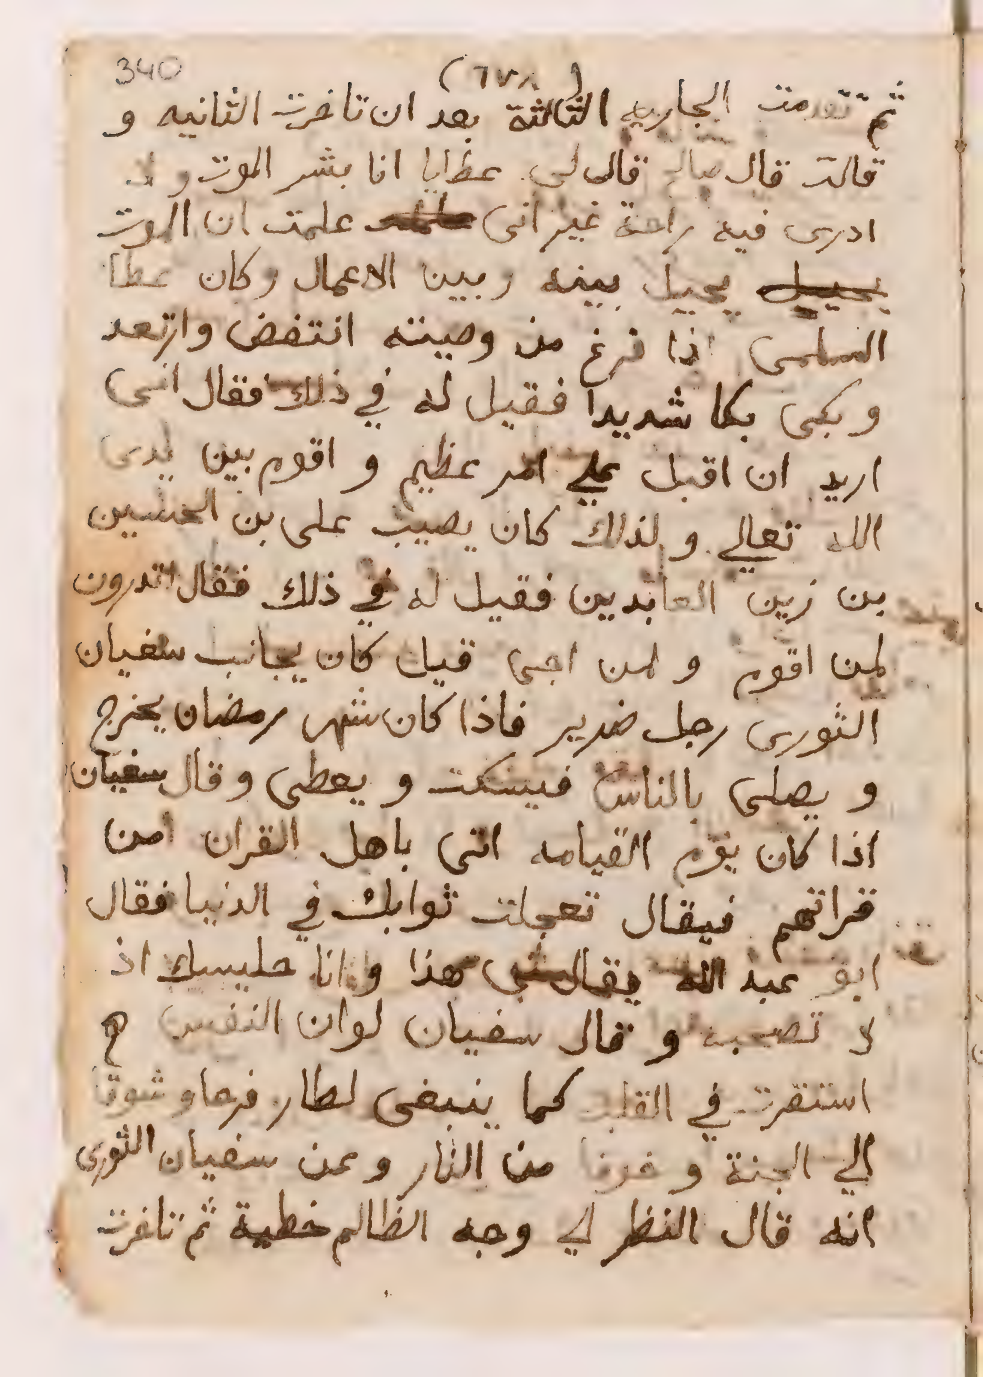 340
(٦٧٨)
ثم تقدمت الجاريه الثالثة بعد ان تاخرت الثانيه و
قالت قال صالح قال لى عطايا انا بشر الموت ولا
ادرى فيه راحة غير انى علمت ان الموت
يحيل يحيل بينه وبين الاعمال وكان عطا
السلمى اذا فرغ من وصيته انتفض وارتعد
وبكى بكا شديدا فقيل له في ذلك فقال انى
اريد ان اقبل علي امر عظيم و اقوم بين يدى
الله تعالي و لذلك كان يصيب على بن الحسين
بن زين العابدين فقيل له في ذلك فقال اتدرون
لمن اقوم و لمن اجى قيل كان يجانب سفيان
الثورى رجل ضرير فاذا كان شهر رمضان يخرج
و يصلى بالناس فيسكت و يعطى وقال سفيان
اذا كان يوم القيامه اتى باهل القران امن
قراتهم فيقال تعجلت ثوابك في الدنيا فقال
ابو عبد الله يقال هذا وانا جليسك اذ
لا تصحبه و قال سفيان لوان النفس
استقرت في القلب كما ينبغى لطار فرحا وشوقا
الي الجنة و خوفا من النار وعن سفيان الثورى
انه قال النظر الي وجه الظالم خطية ثم تاخرت